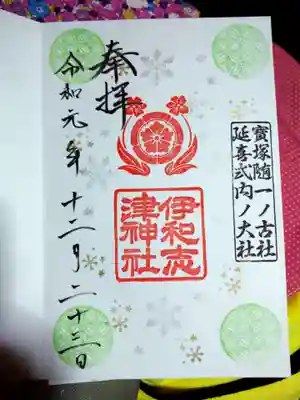 寶塚随一ノ古社
延喜式内ノ大社
奉拝
伊和志
津神社
令和元年十二月二十三日